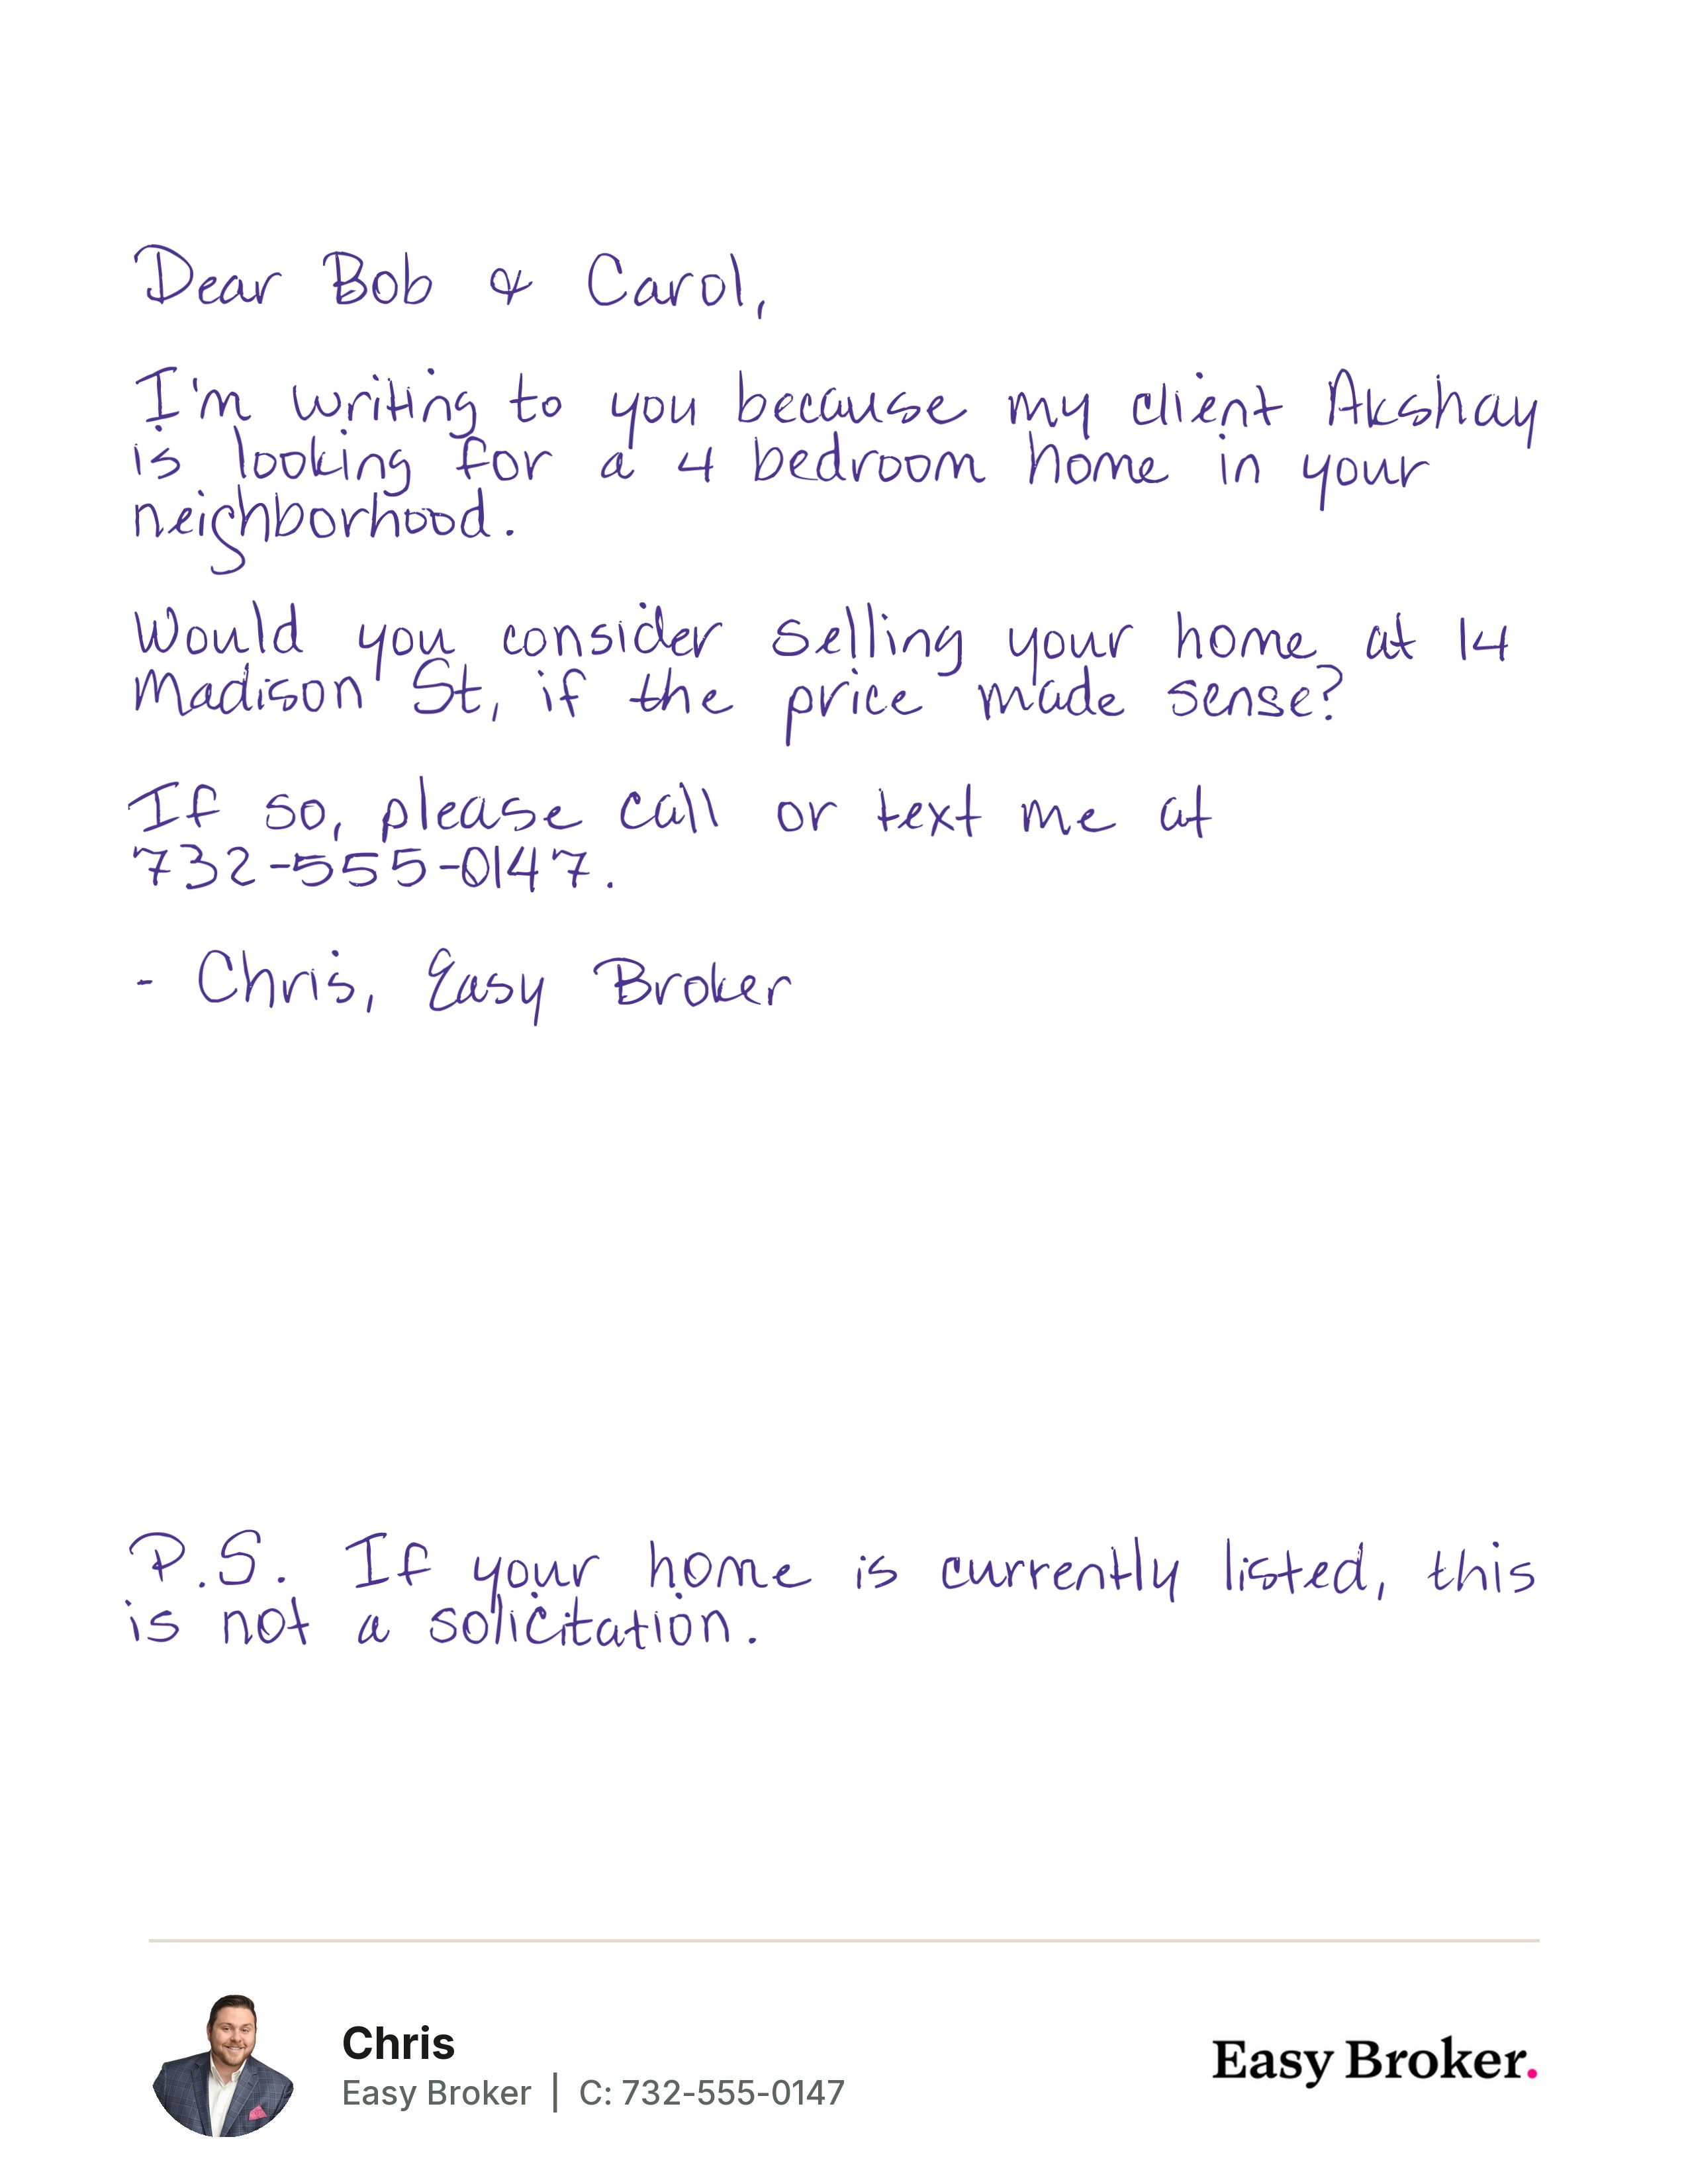 Dear Bob & Carol,
I'm writing to you because my client Akshay
is looking for a 4 bedroom home in your
neighborhood.
Would you consider selling your home at 14
Madison St, if the price made sense?
If so, please call or text me at
732-555-0147.
- Chris, Easy Broker
P.S. If your home is currently listed, this
is not a solicitation.
Chris
Easy Broker | C: 732-555-0147
Easy Broker.